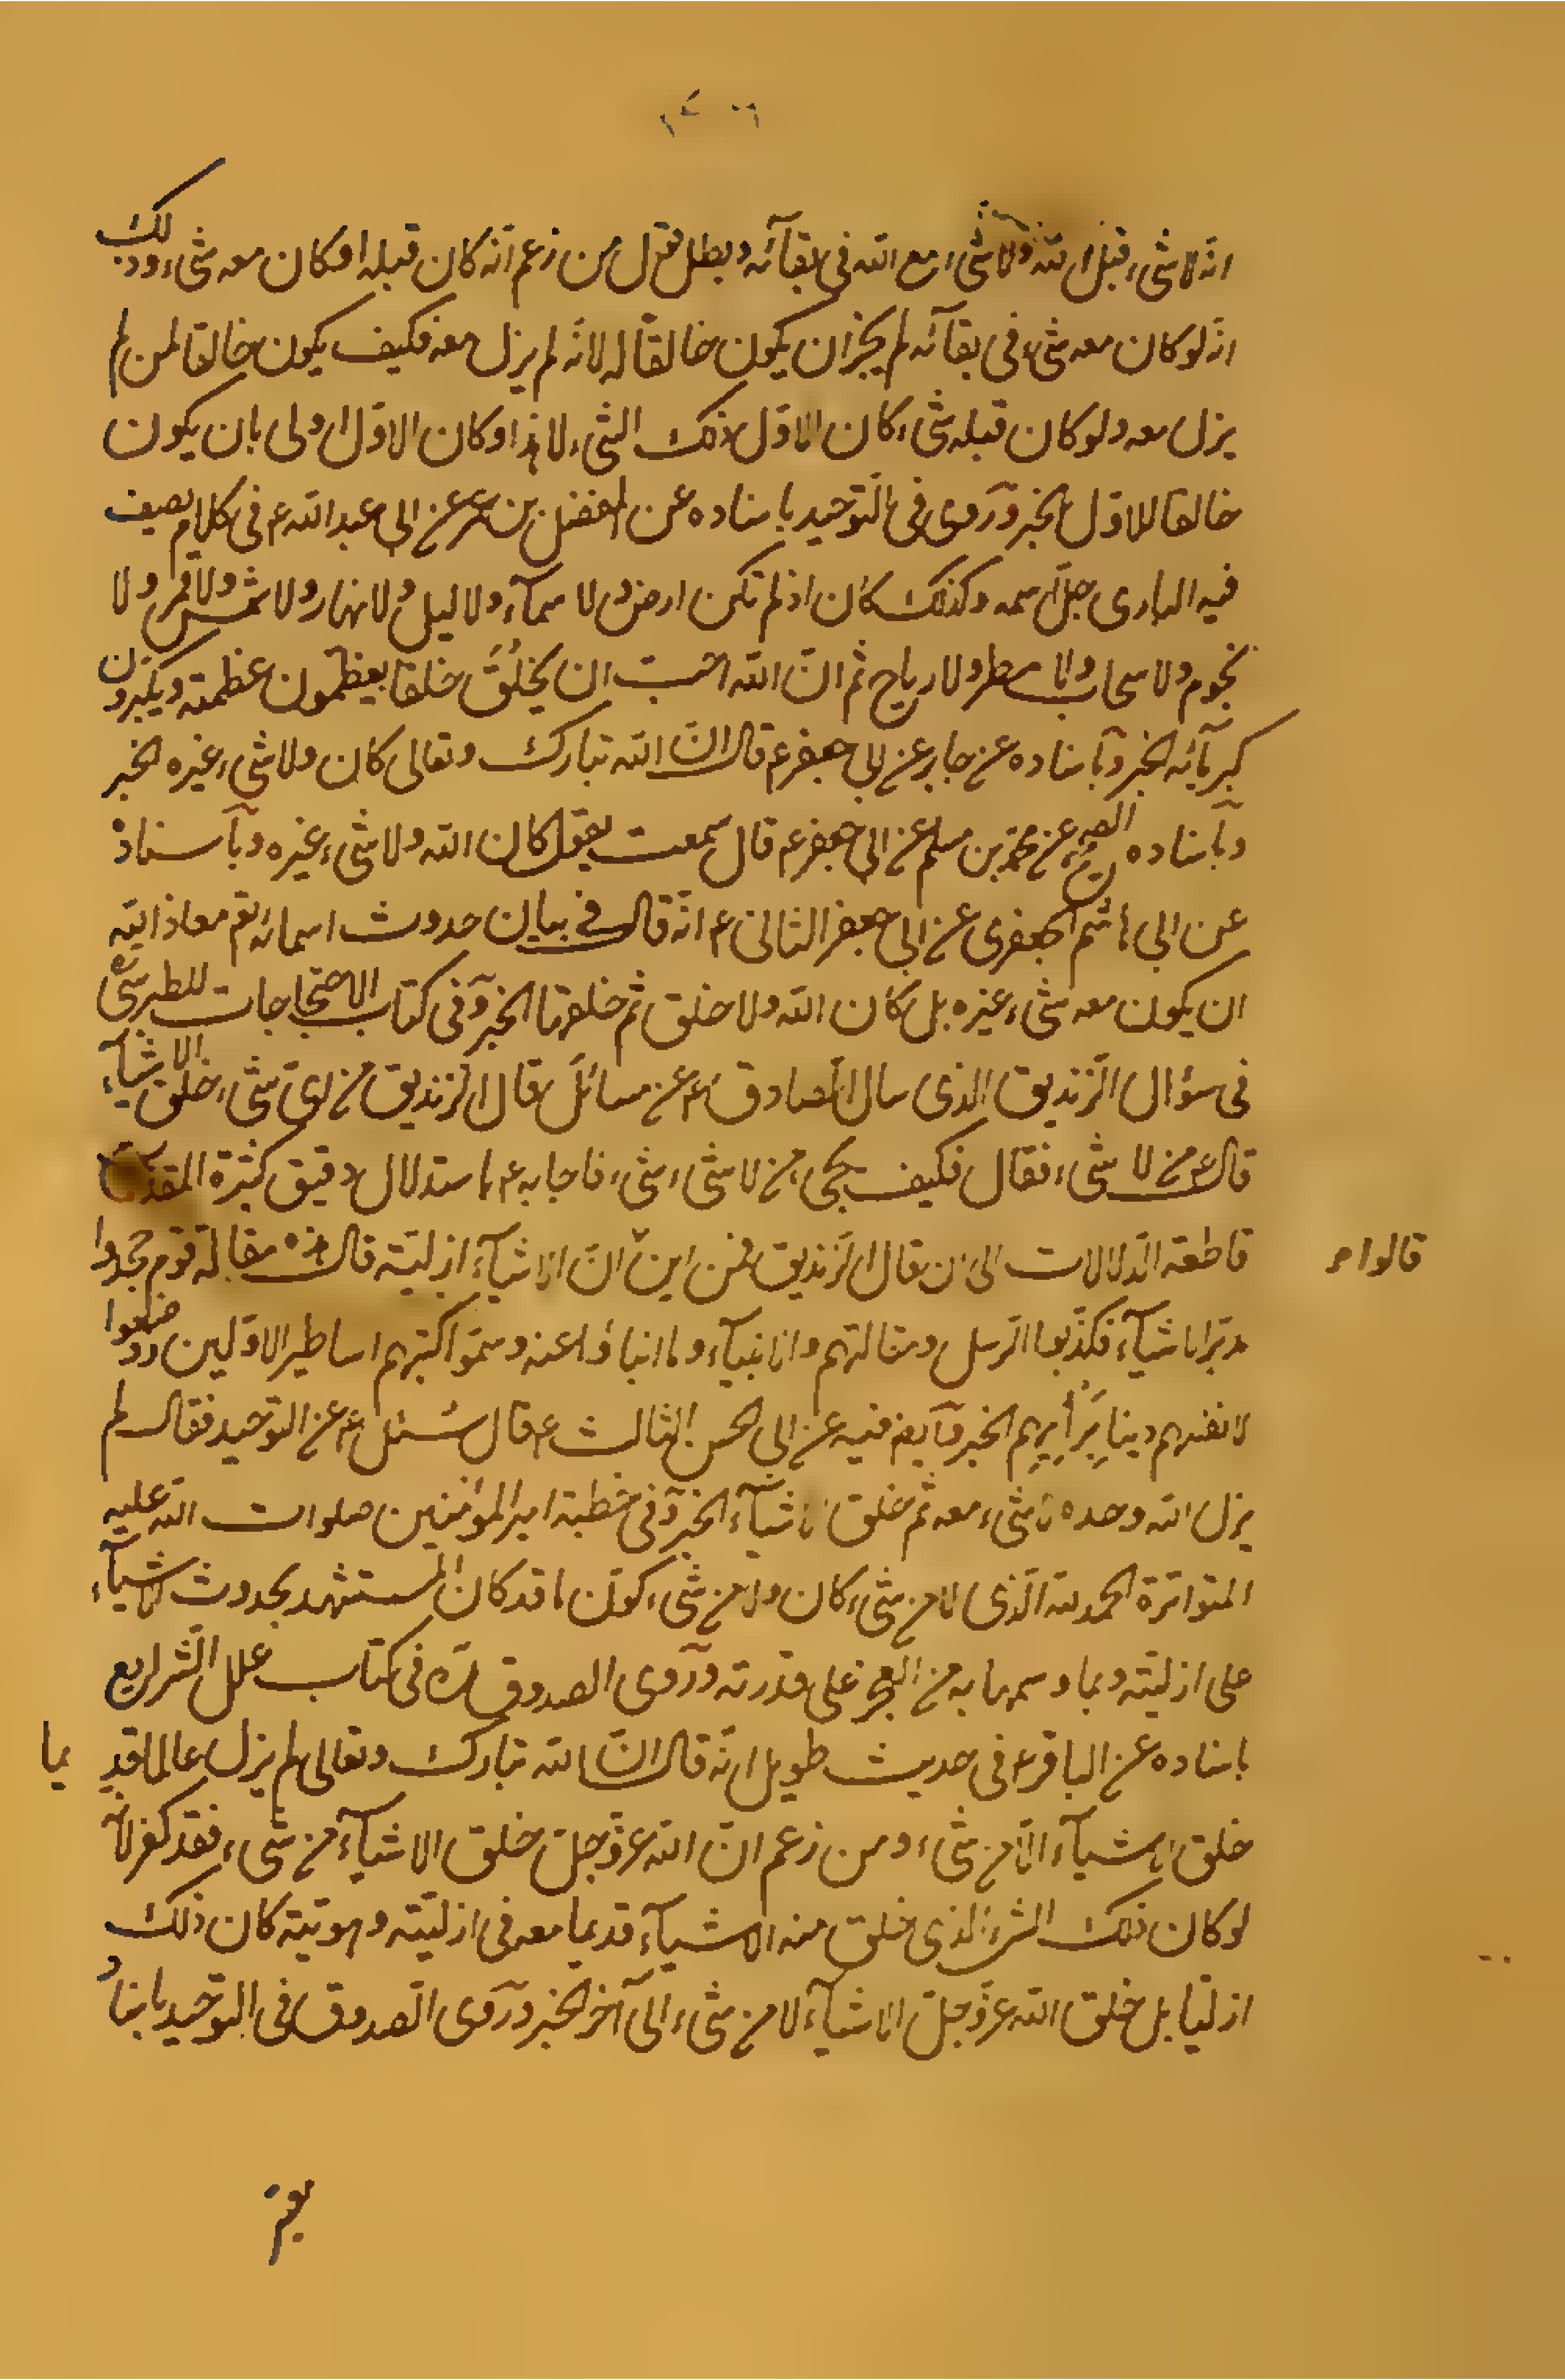 انه لا شیء قبل الله ولا شیء مع الله فی بقآئه و بطل قول من زعم انه کان قبله او کان معه شیء و ذلک
انه لو کان معه شیء فی بقآئه لم یجز ان یکون خالقا له لانه لم یزل معه فکیف یکون خالقا لمن لم
یزل معه و لو کان قبله شیء کان الاول ذلک الشیء لا هذا و کان الاول اولی بان یکون
خالقا للاول الخبر و روی فی التوحید باسناده عن المفضل بن عمر عن ابی عبد الله ع فی کلام یصف
فیه الباری جل اسمه و کذلک کان اذ لم تکن ارض و لا سمآء و لا لیل و لا نهار و لا شمس و لا قمر و لا
نجوم و لا سحاب و لا مطر و لا ریاح ثم ان الله احب ان یخلق خلقا یعظمون عظمته و یکبرون
کبریآئه الخبر و باسناده عن جابر عن ابی جعفر ع قال ان الله تبارک و تعالی کان و لا شیء غیره الخبر
و باسناده الصحیح عن محمد بن مسلم عن ابی جعفر ع قال سمعت یقول کان الله و لا شیء غیره و باسناده
عن ابی هاشم الجعفری عن ابی جعفر الثانی ع انه قال فی بیان حدوث اسمائه تع معاذ الله
ان یکون معه شیء غیره بل کان الله و لا خلق ثم خلقها الخبر و فی کتاب الاحتجاجات للطبرسی ره
فی سؤال الزندیق الذی سال الصادق ع عن مسائل فقال الزندیق من ای شیء خلق الاشیآء
قال ع من لا شیء فقال فکیف یجیء من لا شیء شیء فاجابه ع باستدلال دقیق کثیرة المقدمات
قاطعة الدلالات الی ان قال الزندیق فمن این ان الاشیآء ازلیة قال هذه مقالة قوم جحدوا
قالوا م
مدبر الاشیآء فکذبوا الرسل و مقالتهم و الانبیآء و ما انباؤا عنه و سموا کتبهم اساطیر الاولین و وضعوا
لانفسهم دینا برأیهم الخبر و ایضا فیه عن ابی الحسن الثالث ع قال سئل ع عن التوحید فقال لم
یزل الله وحده لا شیء معه ثم خلق الاشیآء الخبر و فی خطبة امیر المؤمنین صلوات الله علیه
المتواترة الحمد لله الذی لا من شیء کان و لا من شیء کون ما قد کان المستشهد بحدوث الاشیآء
علی ازلیته و بما وسمها به من العجز علی قدرته و روی الصدوق ره فی کتاب علل الشرایع
باسناده عن الباقر ع فی حدیث طویل انه قال ان الله تبارک و تعالی لم یزل عالما قدیما
خلق الاشیآء لا من شیء و من زعم ان الله عز و جل خلق الاشیآء من شیء فقد کفر لانه
لو کان ذلک الشیء الذی خلق منه الاشیآء قدیما معه فی ازلیته و هویته کان ذلک
ازلیا بل خلق الله عز و جل الاشیآء لا من شیء الی آخر الخبر و روی الصدوق فی التوحید باسناده